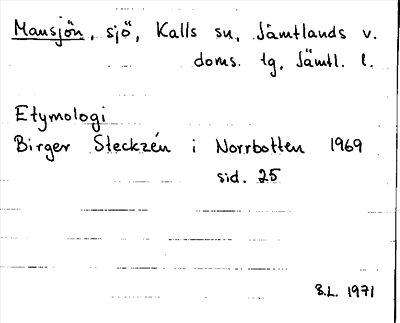 Mansjön, sjö, Kalls sn, Jämtlands v.
doms. tg, Jämtl. l.
Etymologi
Birger Steckzén i Norrbotten 1969
sid. 25
S.L. 1971